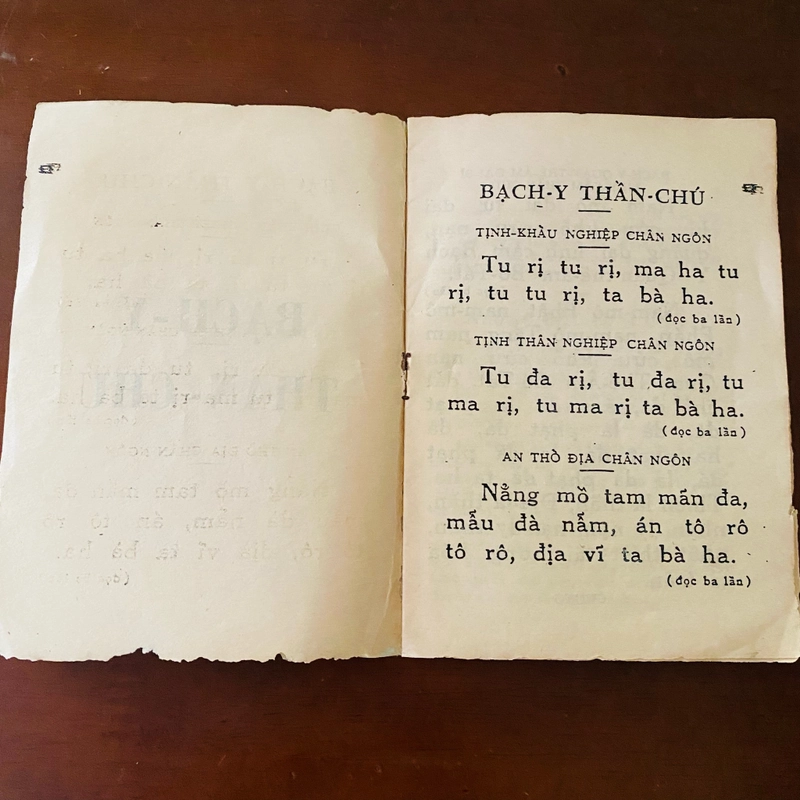 BẠCH-Y THẦN-CHÚ
TỊNH-KHẨU NGHIỆP CHÂN NGÔN
Tu rị tu rị, ma ha tu
rị, tu tu rị, ta bà ha.
(đọc ba lần)
TỊNH THÂN NGHIỆP CHÂN NGÔN
Tu đa rị, tu đa rị, tu
ma rị, tu ma rị ta bà ha.
(đọc ba lần)
AN THỔ ĐỊA CHÂN NGÔN
Nẳng mồ tam mãn đa,
mẩu đà nẩm, án tô rô
tô rô, địa vĩ ta bà ha.
(đọc ba lần)